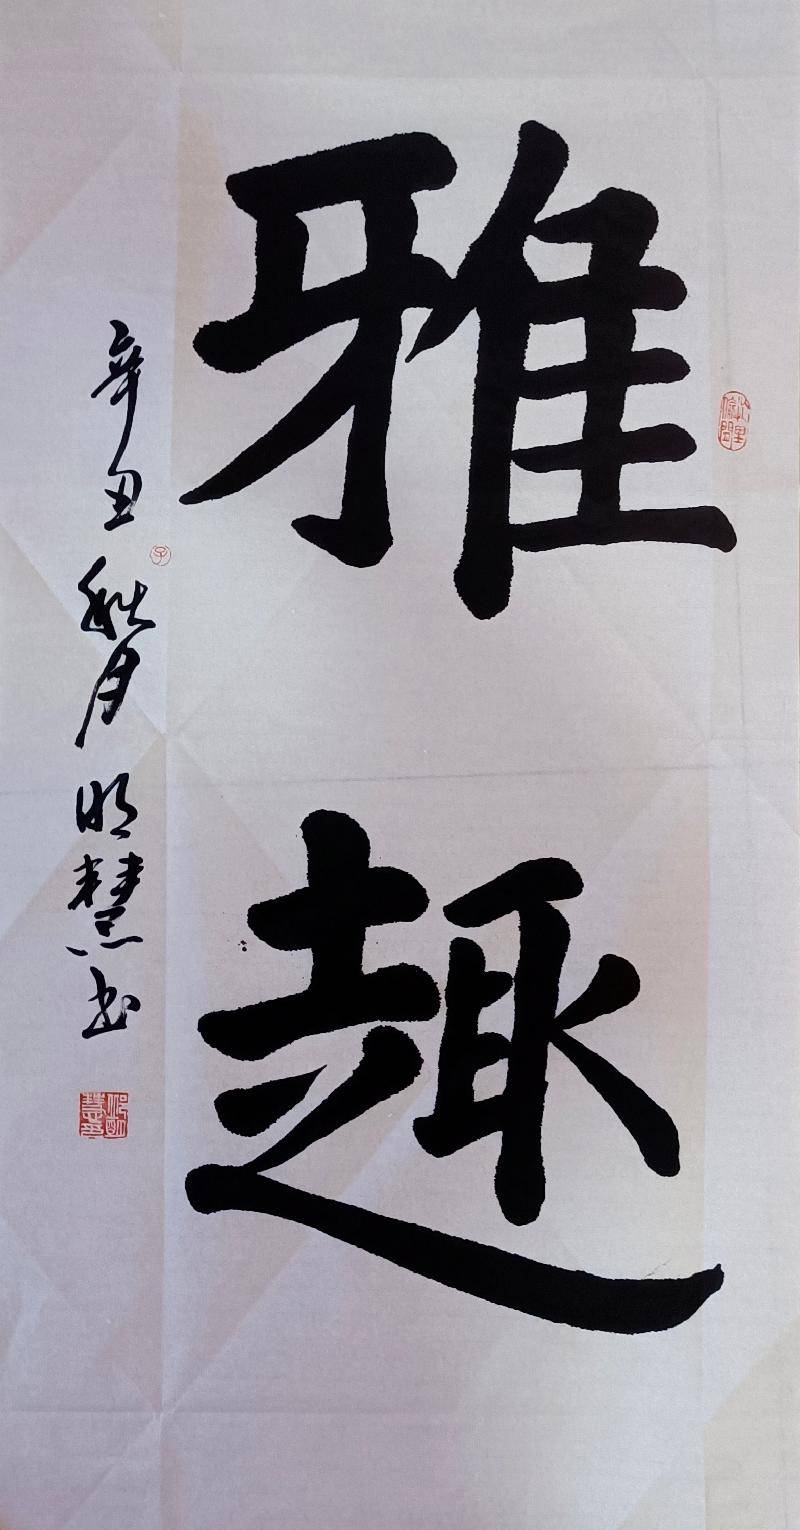 雅趣
辛丑秋月明慧书